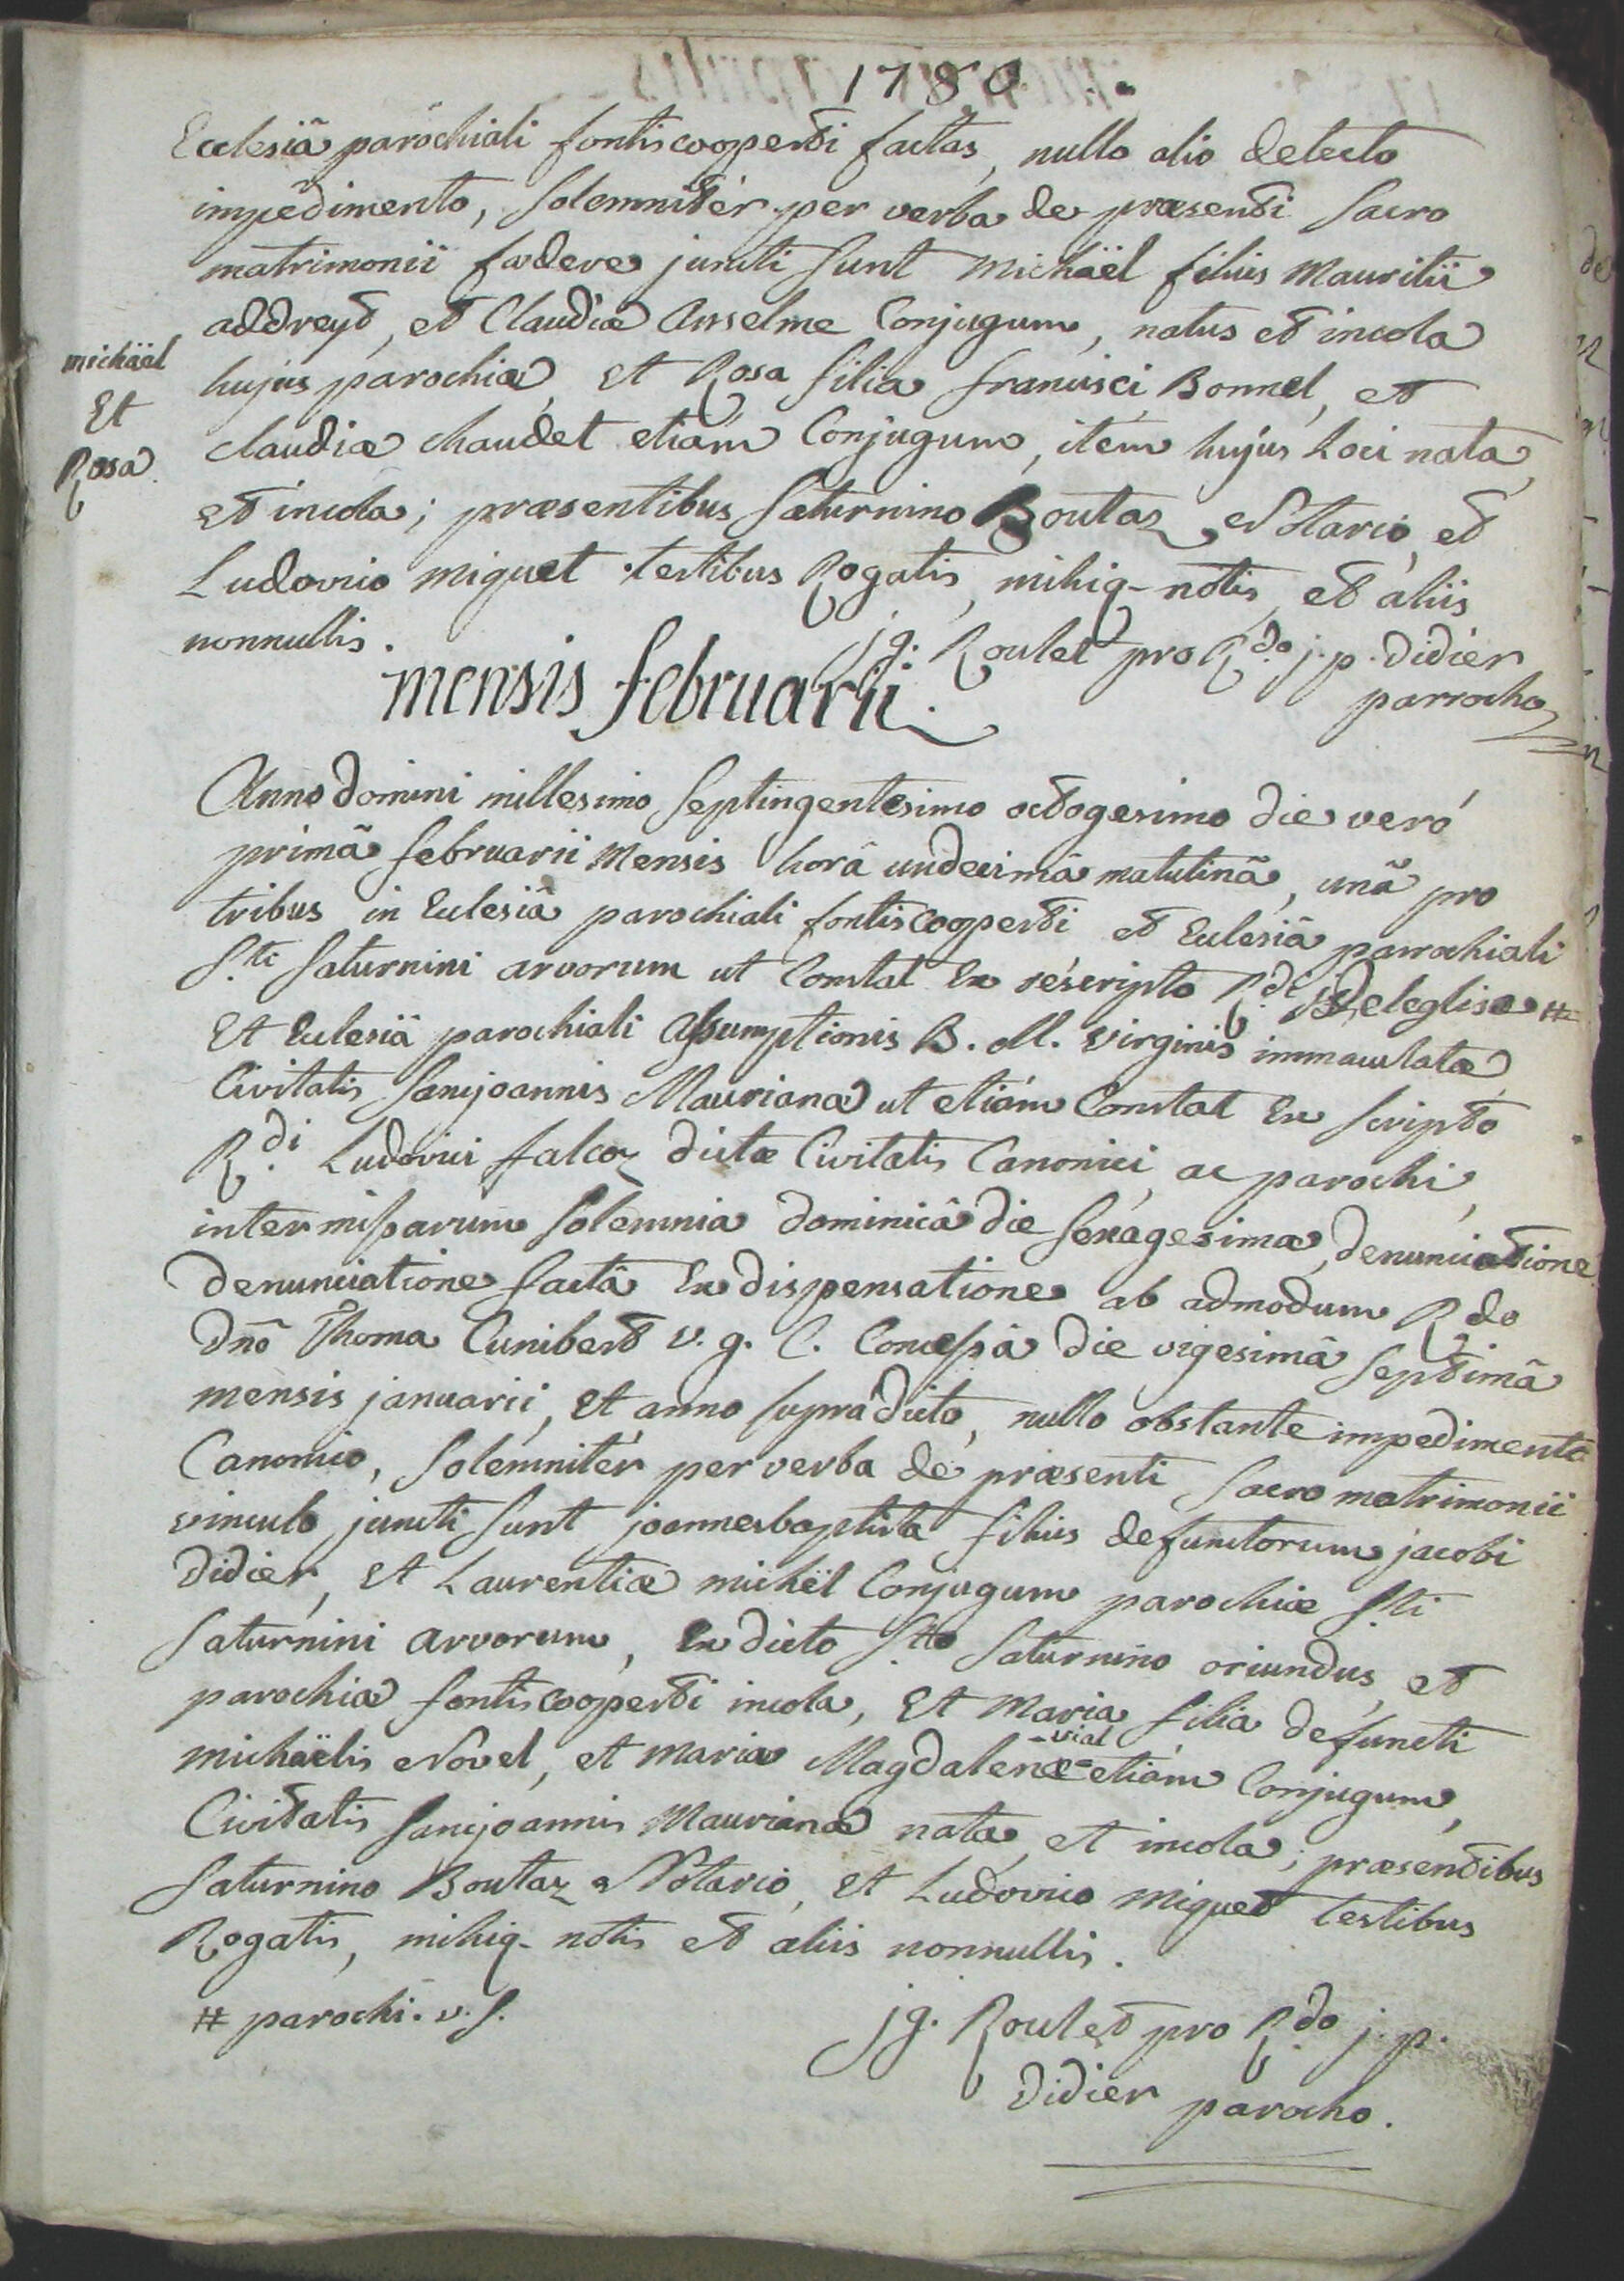 1780
Ecclesiâ parochiali fontiscooperti factas, nullo alio detecto
impedimento, Solemnitér per verba de præsenti Sacro
matrimonii fœdere juncti Sunt Michäel filius Mauritii
addreyt, et Claudiæ Anselme Conjugum, natus et incola
hujus parochiæ, et Rosa filia francisci Bonnel, et
claudiæ chaudet etiám Conjugum, item hujus Loci nata
et incola; præsentibus Saturnino Boutaz Notario, et
Ludovico Miguet testibus Rogatis, mihiq- notis, et aliis
nonnullis.
michäel
Et
Rosa
jg. Roulet pro R.do j. p. Didier
parrocho
mensis februarii.
Anno domini millesimo Septingentesimo octogesimo die veró
primâ februarii Mensis horâ undecimâ matutinâ, unâ pro
tribus in Ecclesiâ parochiali fontiscooperti et Ecclesiâ parrochiali
S.ti Saturnini arvorum ut Constat Ex réscripto R.di Deleglise #
Et Ecclesiâ parochiali Assumptionis B. M. Virginis immaculatæ
Civitatis Sancjoannis Maurianæ ut etiám Constat Ex Scripto
R.di Ludovici falcoz dictæ Civitatis Canonici, ac parochi,
inter missarum Solemnia dominicâ die Sexagesimæ, denunciatione
denunciatione factâ Ex dispensatione ab admodum R.do
Dnõ Thoma Cunibert v. g. C. Concessâ die vigesimâ Septimâ
mensis januarii, Et anno Supradicto, nullo obstante impedimento
Canonico, Solemnitér per verba de præsenti Sacro matrimonii
vinculo juncti Sunt joannesbaptista filius defunctorum jacobi
Didier, Et Laurentiæ michël Conjugum parochiæ S.ti
Saturnini arvorum, Ex dicto S.to Saturnino oriundus, et
parochiæ fontiscooperti incola, Et Maria filia defuncti
michaëlis Novel, et Mariæ Magdalenæ vial etiám Conjugum,
Civitatis Sancjoannis Maurianæ nata, et incola; præsentibus
Saturnino Boutaz Notario, et Ludovico Miguet testibus
Rogatis, mihiq- notis et aliis nonnullis.
# parochi. v. S.
jg. Roulet pro R.do j. p.
Didier parocho.